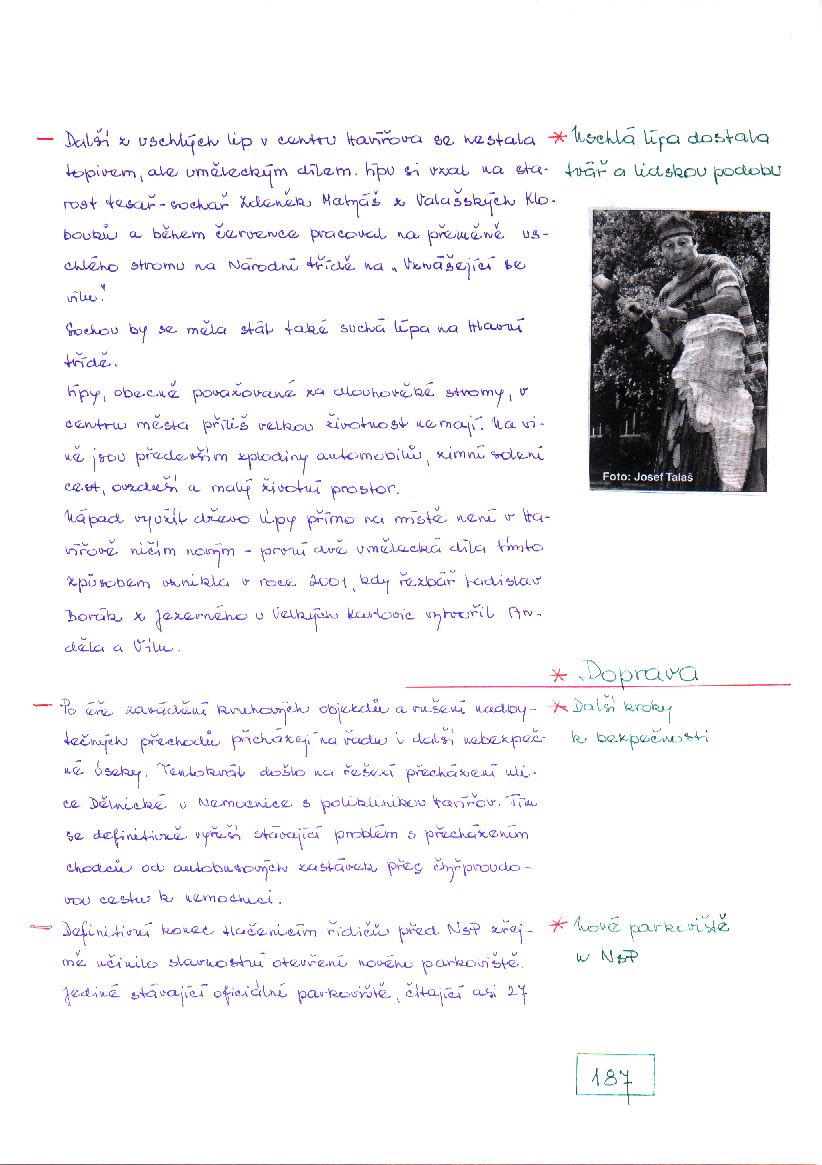 – Další z uschlých lip v centru Havířova se nestala
topivem, ale uměleckým dílem. Lípu si vzal na sta-
rost tesař-sochař Zdeněk Matyáš z Valašských Klo-
bouků a během července pracoval na přeměně us-
chlého stromu na Národní třídě na „Vznášející se
vílu."
Sochou by se měla stát také suchá lípa na Hlavní
třídě.
Lípy, obecně považované za dlouhověké stromy, v
centru města příliš velkou životnost nemají. Na vi-
ně jsou především zplodiny automobilů, zimní solení
cest, ovzduší a malý životní prostor.
Nápad využít dřevo lípy přímo na místě není v Ha-
vířově ničím novým – první dvě umělecká díla tímto
způsobem vznikla v roce 2001, kdy řezbář Ladislav
Borák z Jezerného u Velkých Karlovic vytvořil An-
děla a Vílu.
* Uschlá lípa dostala
tvář a lidskou podobu
Foto: Josef Talaš
* Doprava
– Po éře zavádění kruhových objezdů a rušení nadby-
tečných přechodů přicházejí na řadu i další nebezpeč-
né úseky. Tentokrát došlo na řešení přecházení uli-
ce Dělnické u Nemocnice s poliklinikou Havířov. Tím
se definitivně vyřeší stávající problém s přecházením
chodců od autobusových zastávek přes čtyřproudo-
vou cestu k nemocnici.
* Další kroky
k bezpečnosti
– Definitivní konec tlačenicím řidičů před NsP zřej-
mě učinilo slavnostní otevření nového parkoviště.
Jediné stávající oficiální parkoviště, čítající asi 27
* Nové parkoviště
u NsP
187